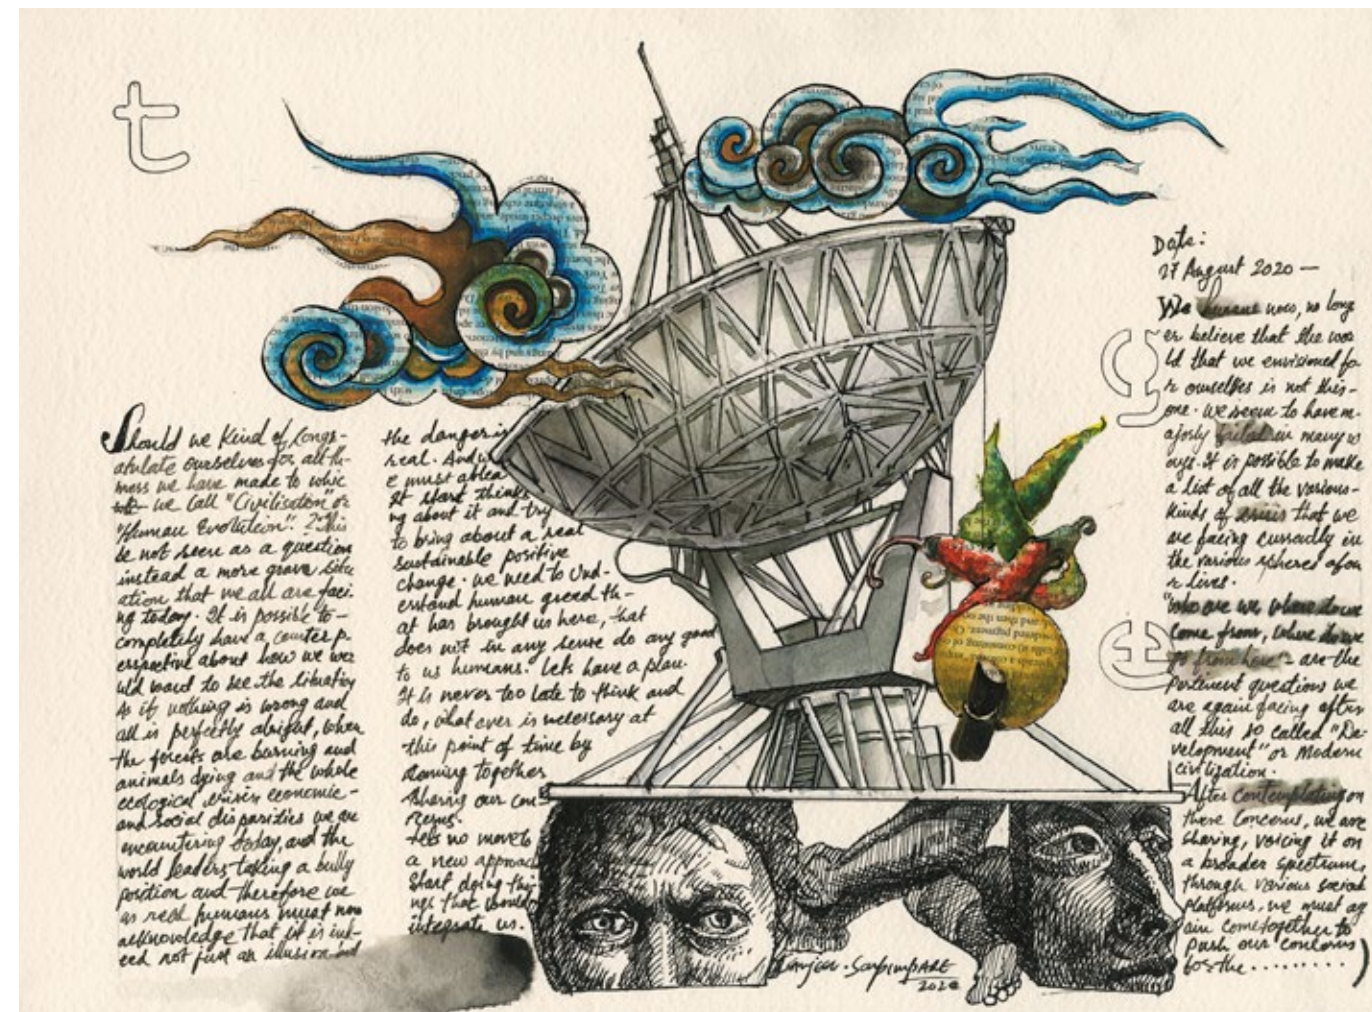 t
Should we kind of congr-
atulate ourselves for all th-
mess we have made to whic
we call "Civilisation" or
"Human Evolution". This
be not seen as a question
instead a more grave situ
ation that we all are faci-
ng today. It is possible to-
completely have a counter p-
erspective about how we wo
uld want to see the
As if nothing is wrong and
all is perfectly alright, when
the forests are burning and
animals dying and the whole
ecological crisis economic-
and social disparities we are
encountering today, and the
world leaders taking a bully
position and therefore we
as real humans must now
acknowledge that it is ind-
eed not just an illusion but
the danger is
real. And w
e must
It start thinki
ng about it and try
to bring about a real
sustainable positive
change. we need to Und-
erstand human greed th-
at has brought us here, that
does not in any sense do any good
to us humans. Lets have a plan.
It is never too late to think and
do, what ever is necessary at
this point of time by
coming together
Sharing our con
cerns.
lets no move to
a new approach
start doing thi-
ngs that would
integrate us.
Date:
27 August 2020 —
We humans now, no long
er believe that the wor
ld that we envisioned fo-
r ourselves is not this-
one. We seem to have m-
ajorly failed in many w
ays. It is possible to make
a list of all the various-
kinds of crisis that we
are facing currently in
the various spheres of ou
r lives.
"Who are we where do we
come from, where do we
go from here" - are the
pertinent questions we
are again facing after
all this so called "De-
velopment" or Modern
civilization.
After contemplating on
these concerns, we are
sharing, voicing it on
a broader spectrum
through various social
platforms. we must ag
ain come together to
push our concerns
for the .........)
g
e
2020